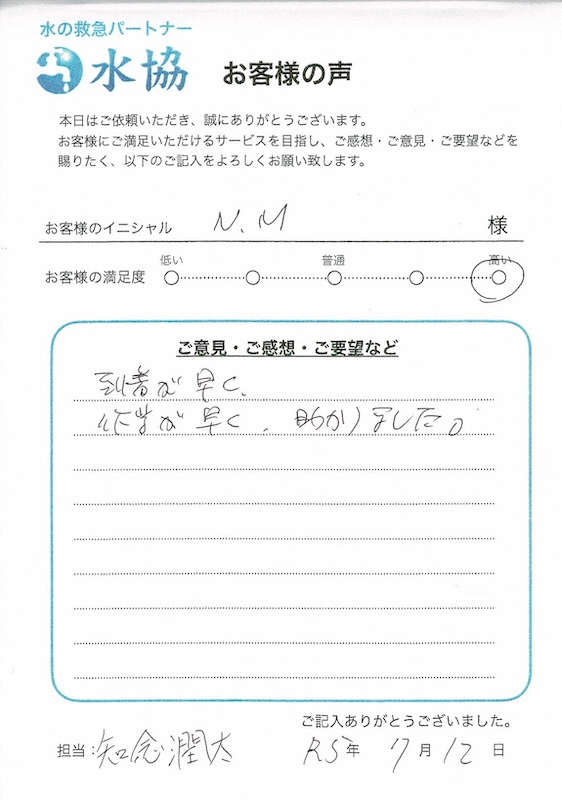 水の救急パートナー
水協 お客様の声
本日はご依頼いただき、誠にありがとうございます。
お客様にご満足いただけるサービスを目指し、ご感想・ご意見・ご要望などを
賜りたく、以下のご記入をよろしくお願い致します。
お客様のイニシャル N.M 様
低い 普通 高い
お客様の満足度
ご意見・ご感想・ご要望など
到着が早く、
作業が早く、助かりました。
ご記入ありがとうございました。
担当:知念潤大 R5年 7月12日